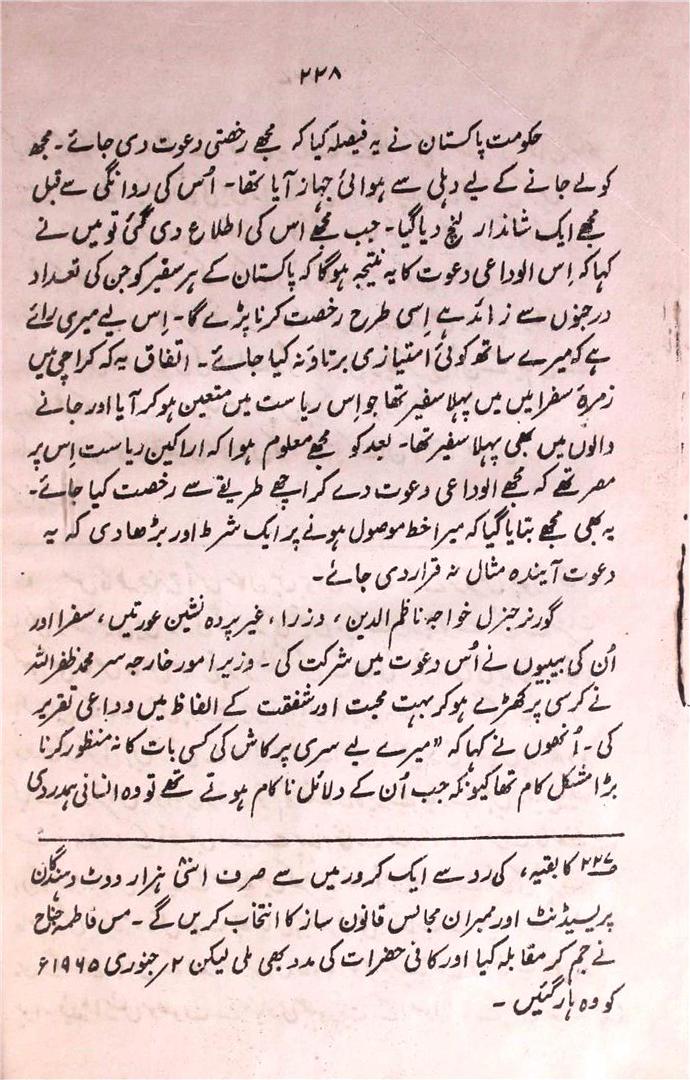 ۲۲۸
حکومت پاکستان نے یہ فیصلہ کیا کہ مجھے رخصتی دعوت دی جائے۔ مجھ
کو لے جانے کے لیے دہلی سے ہوائی جہاز آیا تھا۔ اُس کی روانگی سے قبل
مجھے ایک شاندار لنچ دیا گیا۔ جب مجھے اس کی اطلاع دی گئی تو میں نے
کہا کہ اِس الوداعی دعوت کا یہ نتیجہ ہوگا کہ پاکستان کے ہر سفیر کو جن کی تعداد
درجنوں سے زائد ہے اِسی طرح رخصت کرنا پڑے گا۔ اِس لیے میری رائے
ہے کہ میرے ساتھ کوئی امتیازی برتاؤ نہ کیا جائے۔ اتفاق یہ کہ کراچی میں
زمرۂ سفرا میں میں پہلا سفیر تھا جو اِس ریاست میں متعین ہو کر آیا اور جانے
والوں میں بھی پہلا سفیر تھا۔ بعد کو مجھے معلوم ہوا کہ اراکین ریاست اِس پر
مصر تھے کہ مجھے الوداعی دعوت دے کر اچھے طریقے سے رخصت کیا جائے۔
یہ بھی مجھے بتایا گیا کہ میرا خط موصول ہونے پر ایک شرط اور بڑھا دی کہ یہ
دعوت آیندہ مثال نہ قرار دی جائے۔
گورنر جنرل خواجہ ناظم الدین، وزرا، غیر پردہ نشین عورتیں، سفرا اور
اُن کی بیبیوں نے اُس دعوت میں شرکت کی۔ وزیر امور خارجہ سر محمد ظفر اللہ
نے کرسی پر کھڑے ہو کر بہت محبت اور شفقت کے الفاظ میں وداعی تقریر
کی۔ اُنھوں نے کہا کہ "میرے لیے سری پرکاش کی کسی بات کا نہ منظور کرنا
بڑا مشکل کام تھا کیونکہ جب اُن کے دلائل ناکام ہوتے تھے تو وہ انسانی ہمدردی
صـ۲۲۷ کا بقیہ، کی رد سے ایک کرور میں سے صرف انشی ہزار ووٹ دہندگان
پریسیڈنٹ اور ممبران مجالس قانون ساز کا انتخاب کریں گے۔ مس فاطمہ جناح
نے جم کر مقابلہ کیا اور کافی حضرات کی مدد بھی ملی لیکن ۲؍ جنوری ۱۹۶۵ء
کو وہ ہار گئیں۔